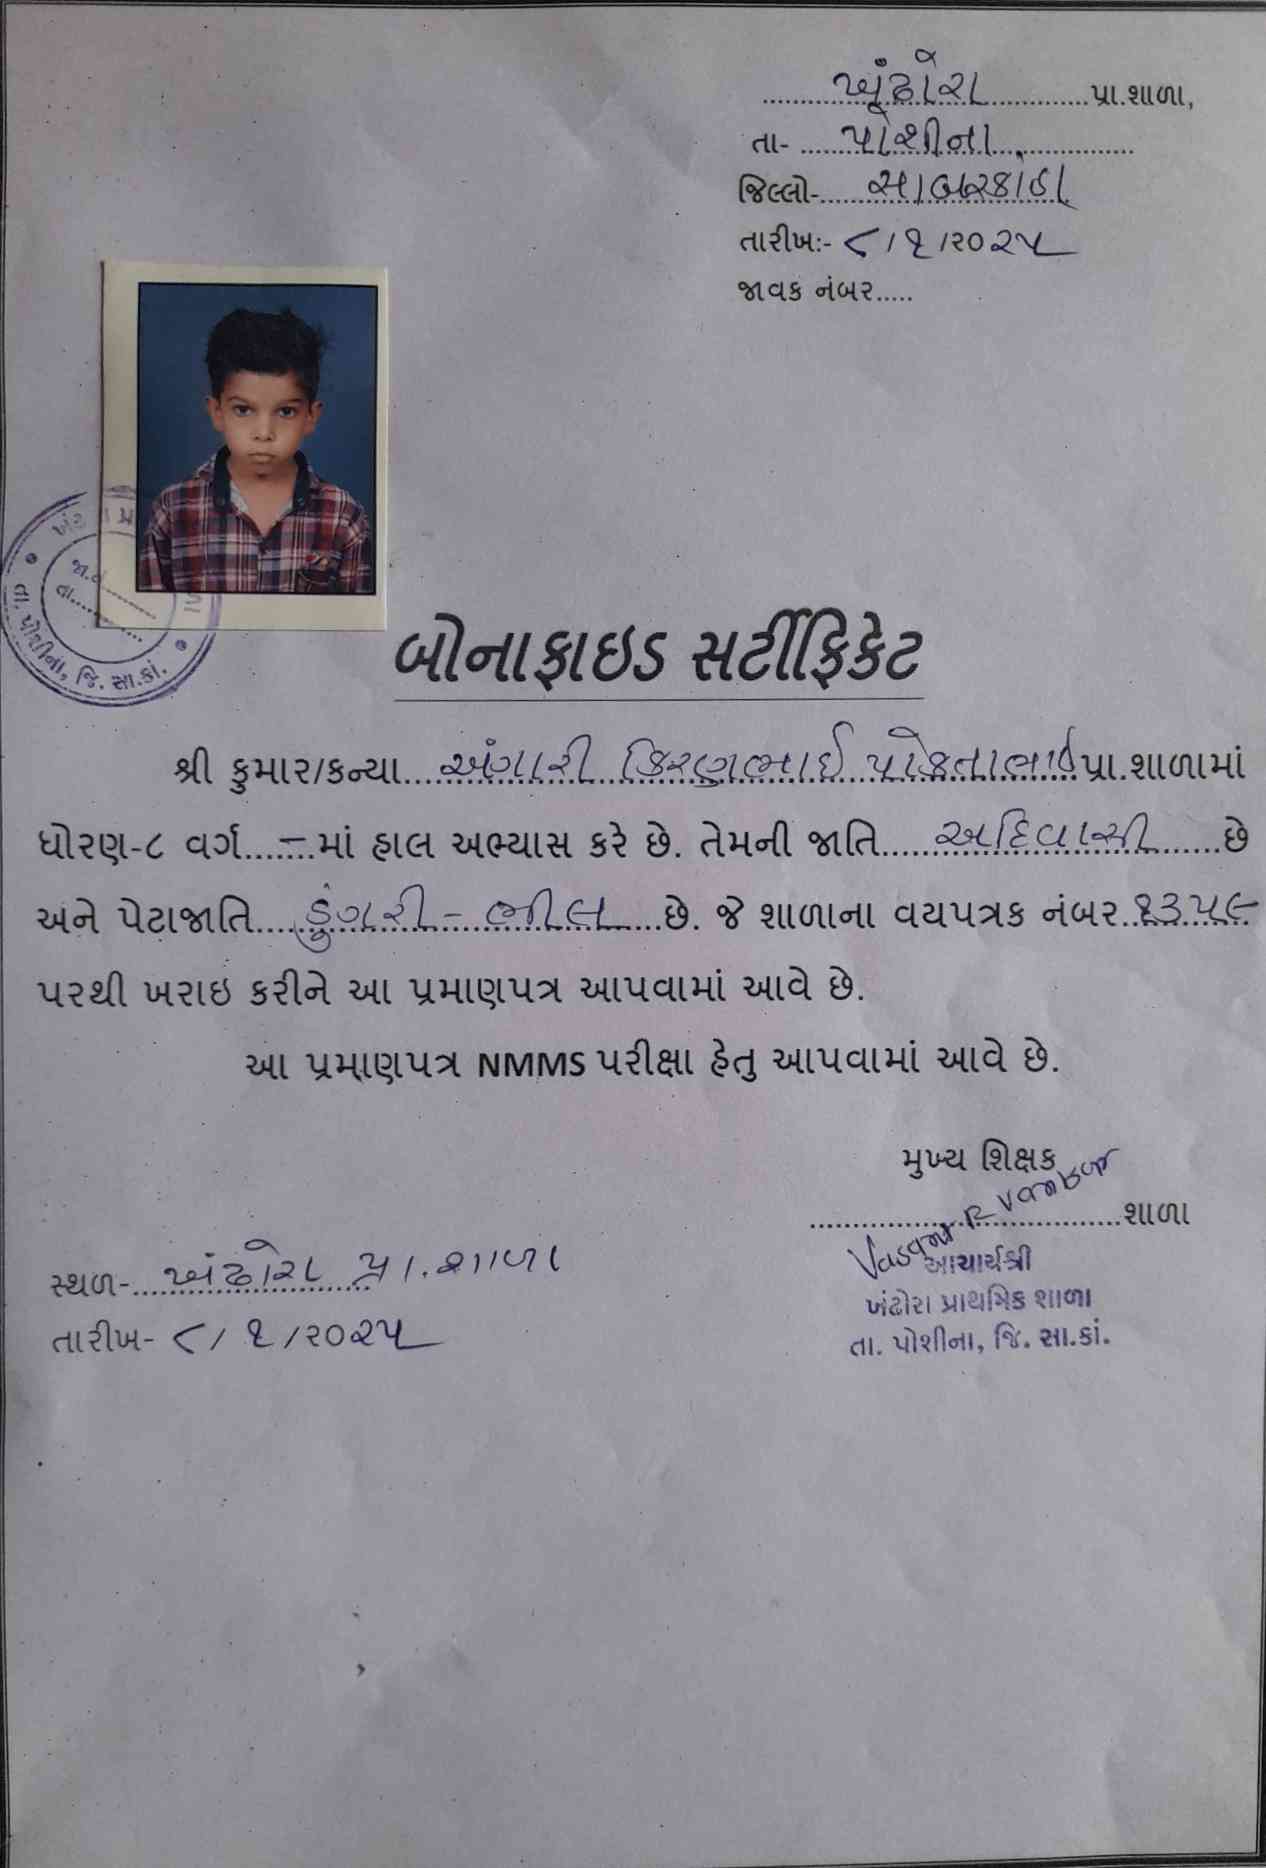 ખંઢોરા પ્રા.શાળા,
તા- પોશીના
જિલ્લો- સાબરકાંઠા
તારીખ:- ૮/૧/૨૦૨૫
જાવક નંબર.....
જા.નં
તા.
તા. પોશીના, જિ. સા.કાં.
બોનાફાઇડ સર્ટીફિકેટ
શ્રી કુમાર/કન્યા અંગારી કિરણભાઈ પોકતાભાઈ પ્રા.શાળામાં
ધોરણ-૮ વર્ગ....–...માં હાલ અભ્યાસ કરે છે. તેમની જાતિ અદિવાસી છે
અને પેટાજાતિ ડુંગરી - ભીલ છે. જે શાળાના વયપત્રક નંબર ૧૩૫૯
પરથી ખરાઇ કરીને આ પ્રમાણપત્ર આપવામાં આવે છે.
આ પ્રમાણપત્ર NMMS પરીક્ષા હેતુ આપવામાં આવે છે.
મુખ્ય શિક્ષક
શાળા
Vasant R Vankar
આચાર્યશ્રી
ખંઢોરા પ્રાથમિક શાળા
તા. પોશીના, જિ. સા.કાં.
સ્થળ- ખંઢોરા પ્રા.શાળા
તારીખ- ૮/૧/૨૦૨૫